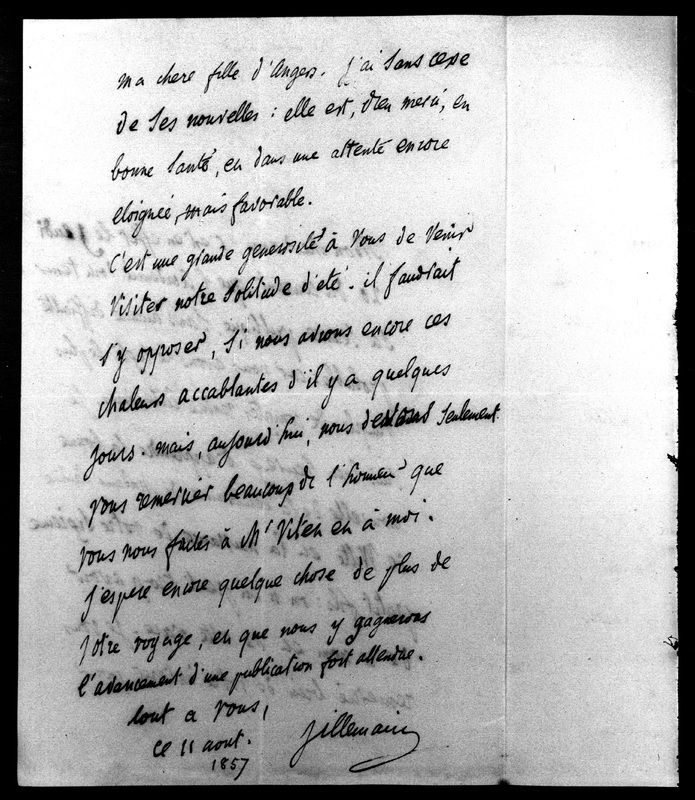 ma chere fille d'Angers. j'ai sans cesse
de ses nouvelles : elle est, dieu merci, en
bonne santé, et dans une attente encore
eloignée, mais favorable.
C'est une grande generosité à vous de venir
visiter notre solitude d'été. il faudrait
s'y opposer, si nous avions encore ces
chaleurs accablantes d'il y a quelques
jours. mais, aujourd'hui, nous devons seulement
vous remercier beaucoup de l'honneur que
vous nous faites à Mr Vitet et à moi.
j'espere encore quelque chose de plus de
votre voyage, et que nous y gagnerons
l'avancement d'une publication fort attendue.
tout a vous,
ce 11 aout. Villemain
1857